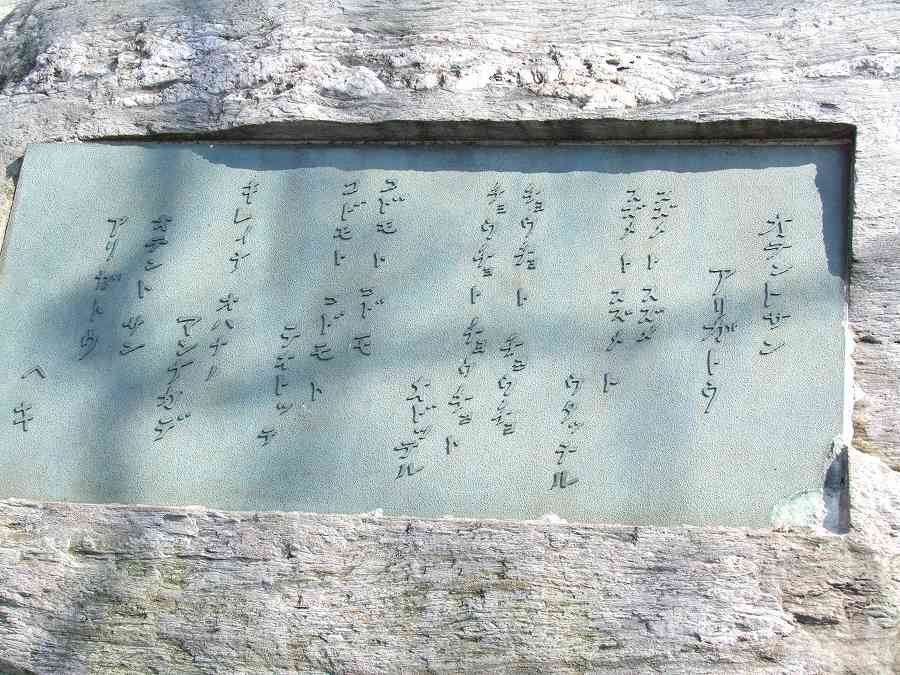 オテントサン
アリガトウ
スズメト スズメ
スズメト スズメト
ウタッテル
チョウチョト チョウチョ
チョウチョト チョウチョト
オドッテル
コドモト コドモ
コドモト コドモト
テヲトッテ
キレイナ オハナノ
マンナカデ
オテントサン
アリガトウ
ヘキ